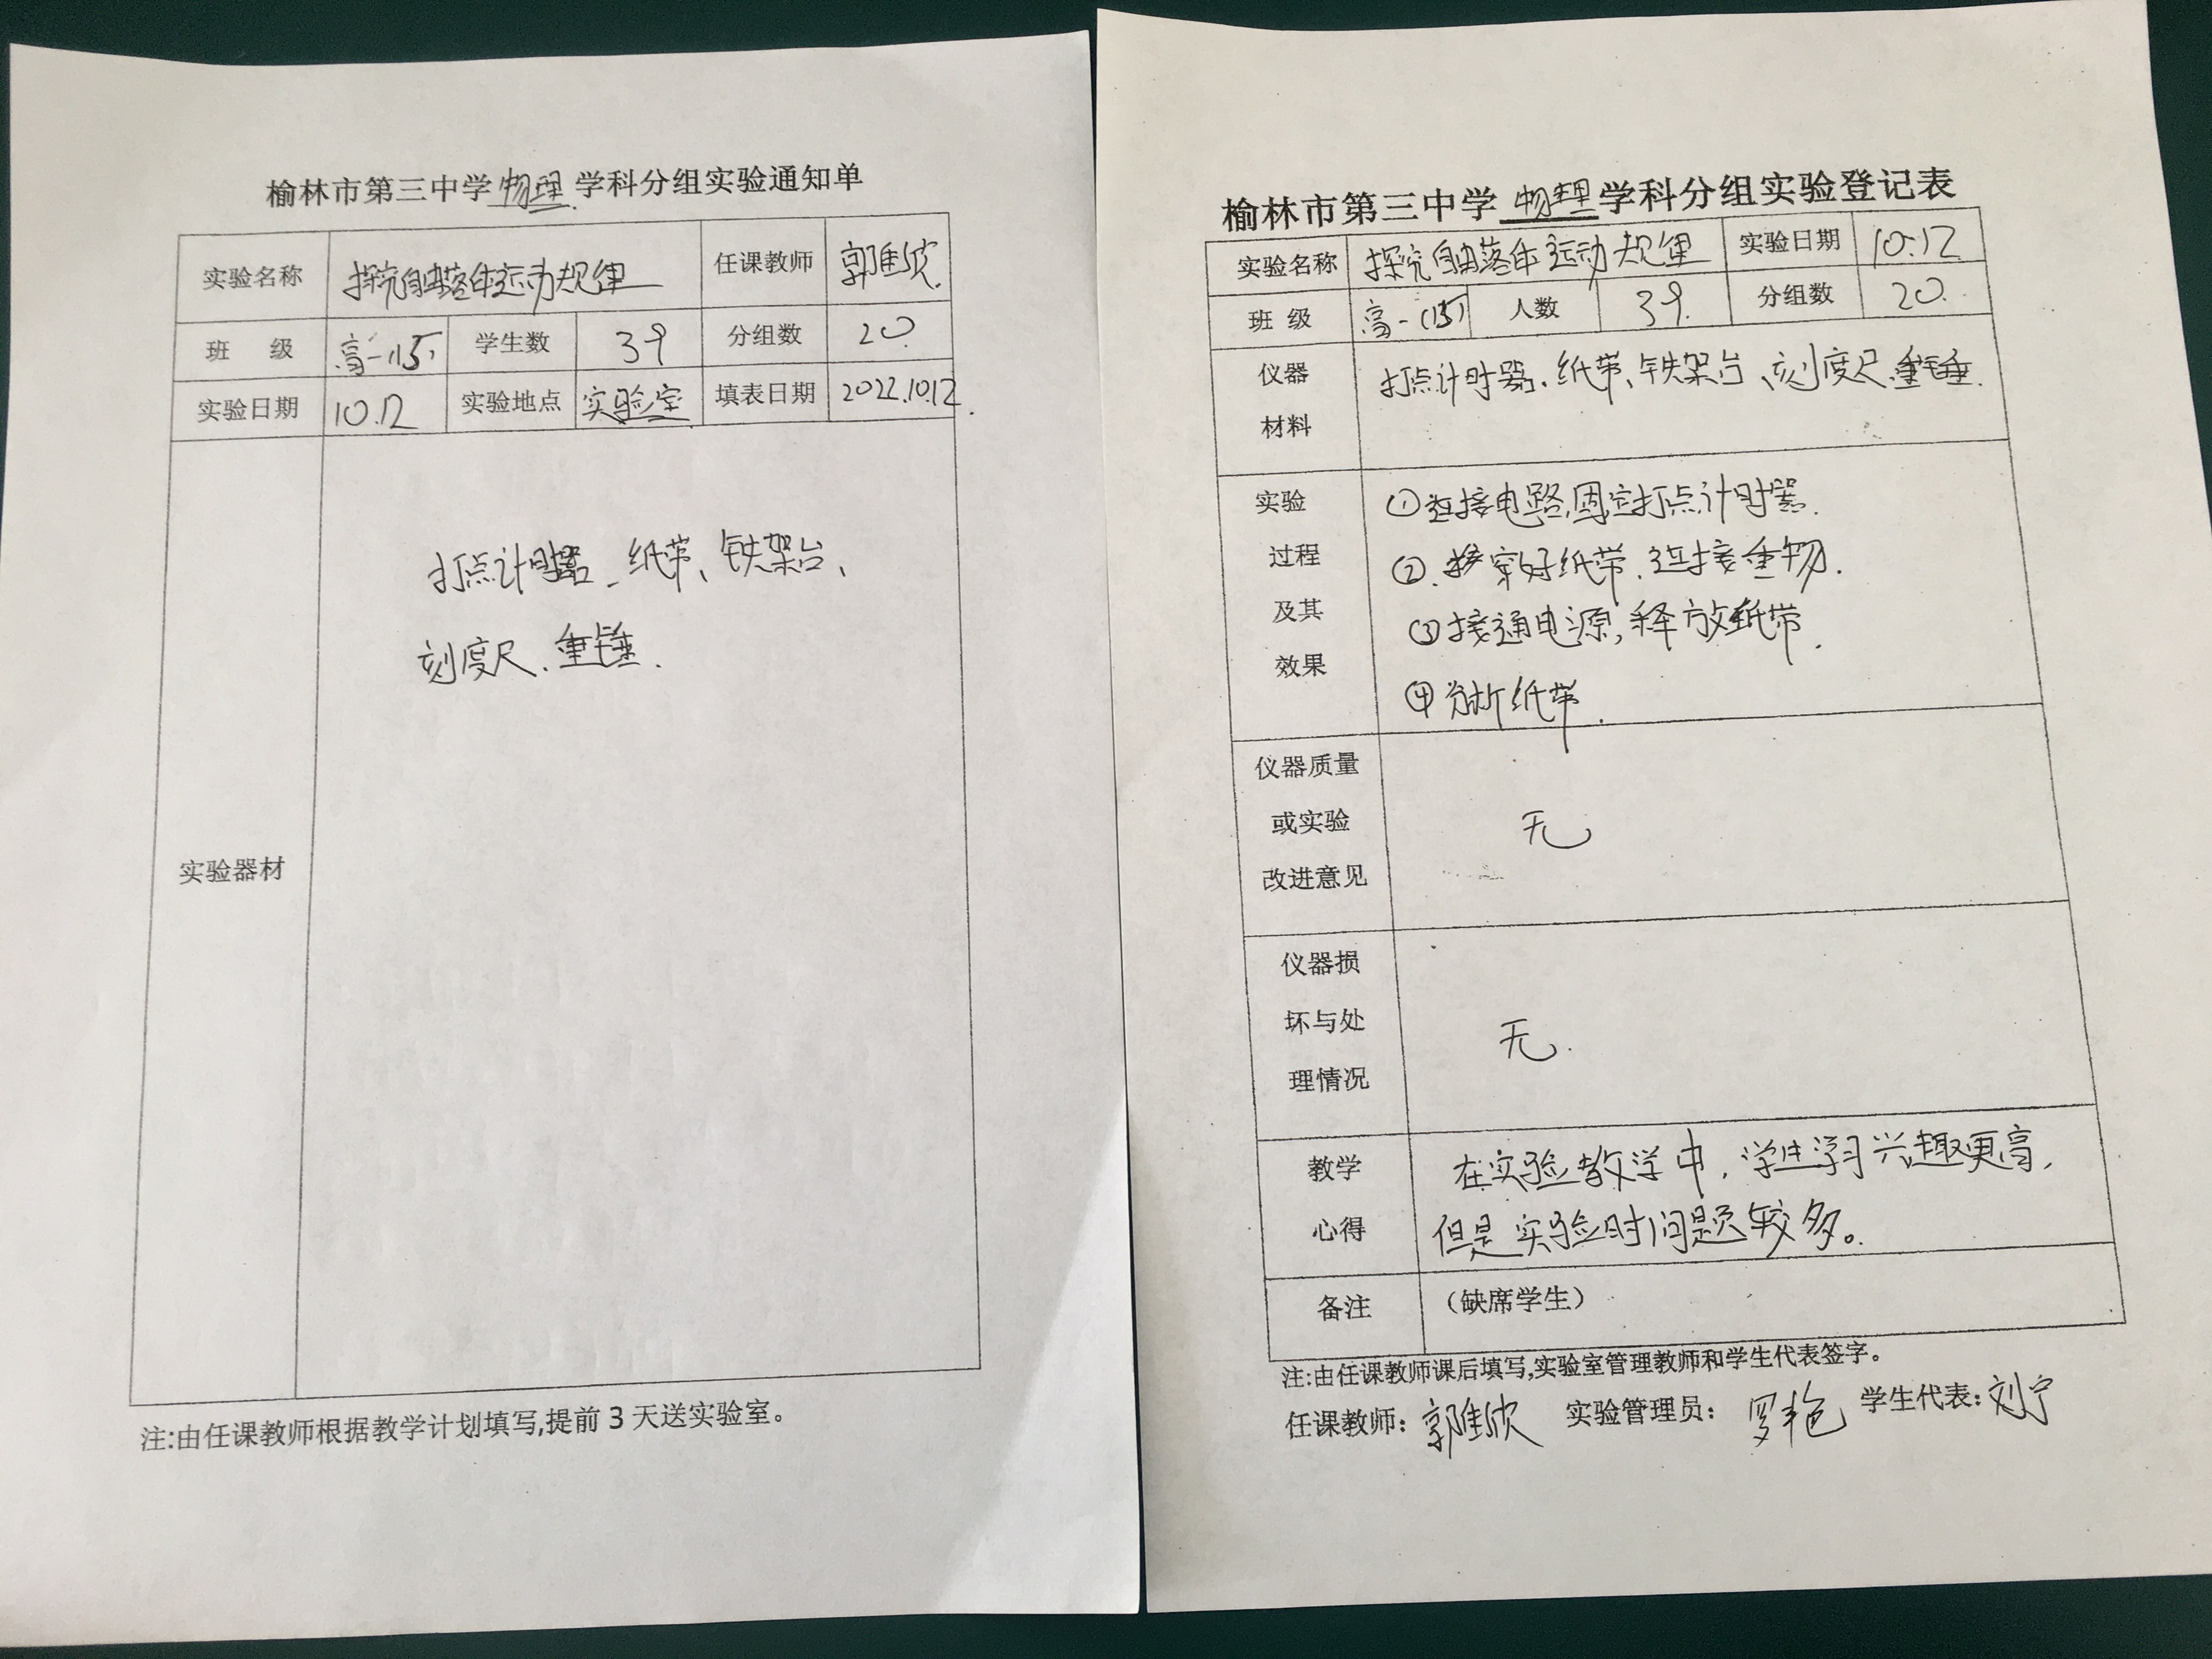 榆林市第三中学物理学科分组实验通知单
实验名称 探究自由落体运动规律 任课教师 郭佳欣
班 级 高一(15) 学生数 39 分组数 20
实验日期 10.12 实验地点 实验室 填表日期 2022.10.12.
实验器材
打点计时器、纸带、铁架台、
刻度尺、重锤.
注:由任课教师根据教学计划填写,提前3天送实验室。
榆林市第三中学物理学科分组实验登记表
实验名称 探究自由落体运动规律 实验日期 10.12
班 级 高一(15) 人数 39. 分组数 20.
仪器
材料
打点计时器、纸带、铁架台、刻度尺、重锤.
实验
过程
及其
效果
①连接电路,固定打点计时器.
②.穿好纸带.连接重物.
③接通电源,释放纸带.
④分析纸带.
仪器质量
或实验
改进意见
无
仪器损
坏与处
理情况
无.
教学
心得
在实验教学中,学生学习兴趣更高,
但是实验时问题较多。
备注 (缺席学生)
注:由任课教师课后填写,实验室管理教师和学生代表签字。
任课教师: 郭佳欣 实验管理员: 罗艳 学生代表: 刘宁